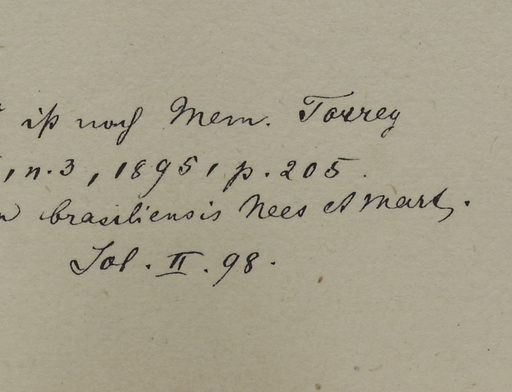 ist nach Mem. Torrey
, n. 3, 1895, p. 205.
brasiliensis Nees & Mart.
Sol. II. 98.